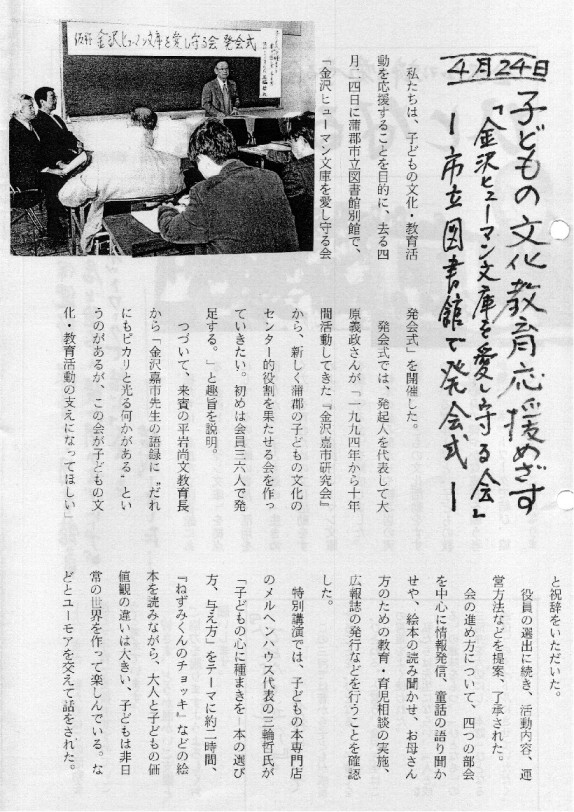 4月24日
子どもの文化教育応援めざす
「金沢ヒューマン文庫を愛し守る会」
ー市立図書館で発会式ー
金沢ヒューマン文庫を愛し守る会 発会式
私たちは、子どもの文化・教育活
動を応援することを目的に、去る四
月二四日に蒲郡市立図書館別館で、
「金沢ヒューマン文庫を愛し守る会
発会式」を開催した。
発会式では、発起人を代表して大
原義政さんが「一九九四年から十年
間活動してきた『金沢嘉市研究会』
から、新しく蒲郡の子どもの文化の
センター的役割を果たせる会を作っ
ていきたい。初めは会員三六人で発
足する。」と趣旨を説明。
つづいて、来賓の平岩尚文教育長
から「金沢嘉市先生の語録に〝だれ
にもピカリと光る何かがある〟とい
うのがあるが、この会が子どもの文
化・教育活動の支えになってほしい」
と祝辞をいただいた。
役員の選出に続き、活動内容、運
営方法などを提案、了承された。
会の進め方について、四つの部会
を中心に情報発信、童話の語り聞か
せや、絵本の読み聞かせ、お母さん
方のための教育・育児相談の実施、
広報誌の発行などを行うことを確認
した。
特別講演では、子どもの本専門店
のメルヘンハウス代表の三輪哲氏が
「子どもの心に種まきを―本の選び
方、与え方」をテーマに約二時間、
『ねずみくんのチョッキ』などの絵
本を読みながら、大人と子どもの価
値観の違いは大きい、子どもは非日
常の世界を作って楽しんでいる。な
どとユーモアを交えて話をされた。